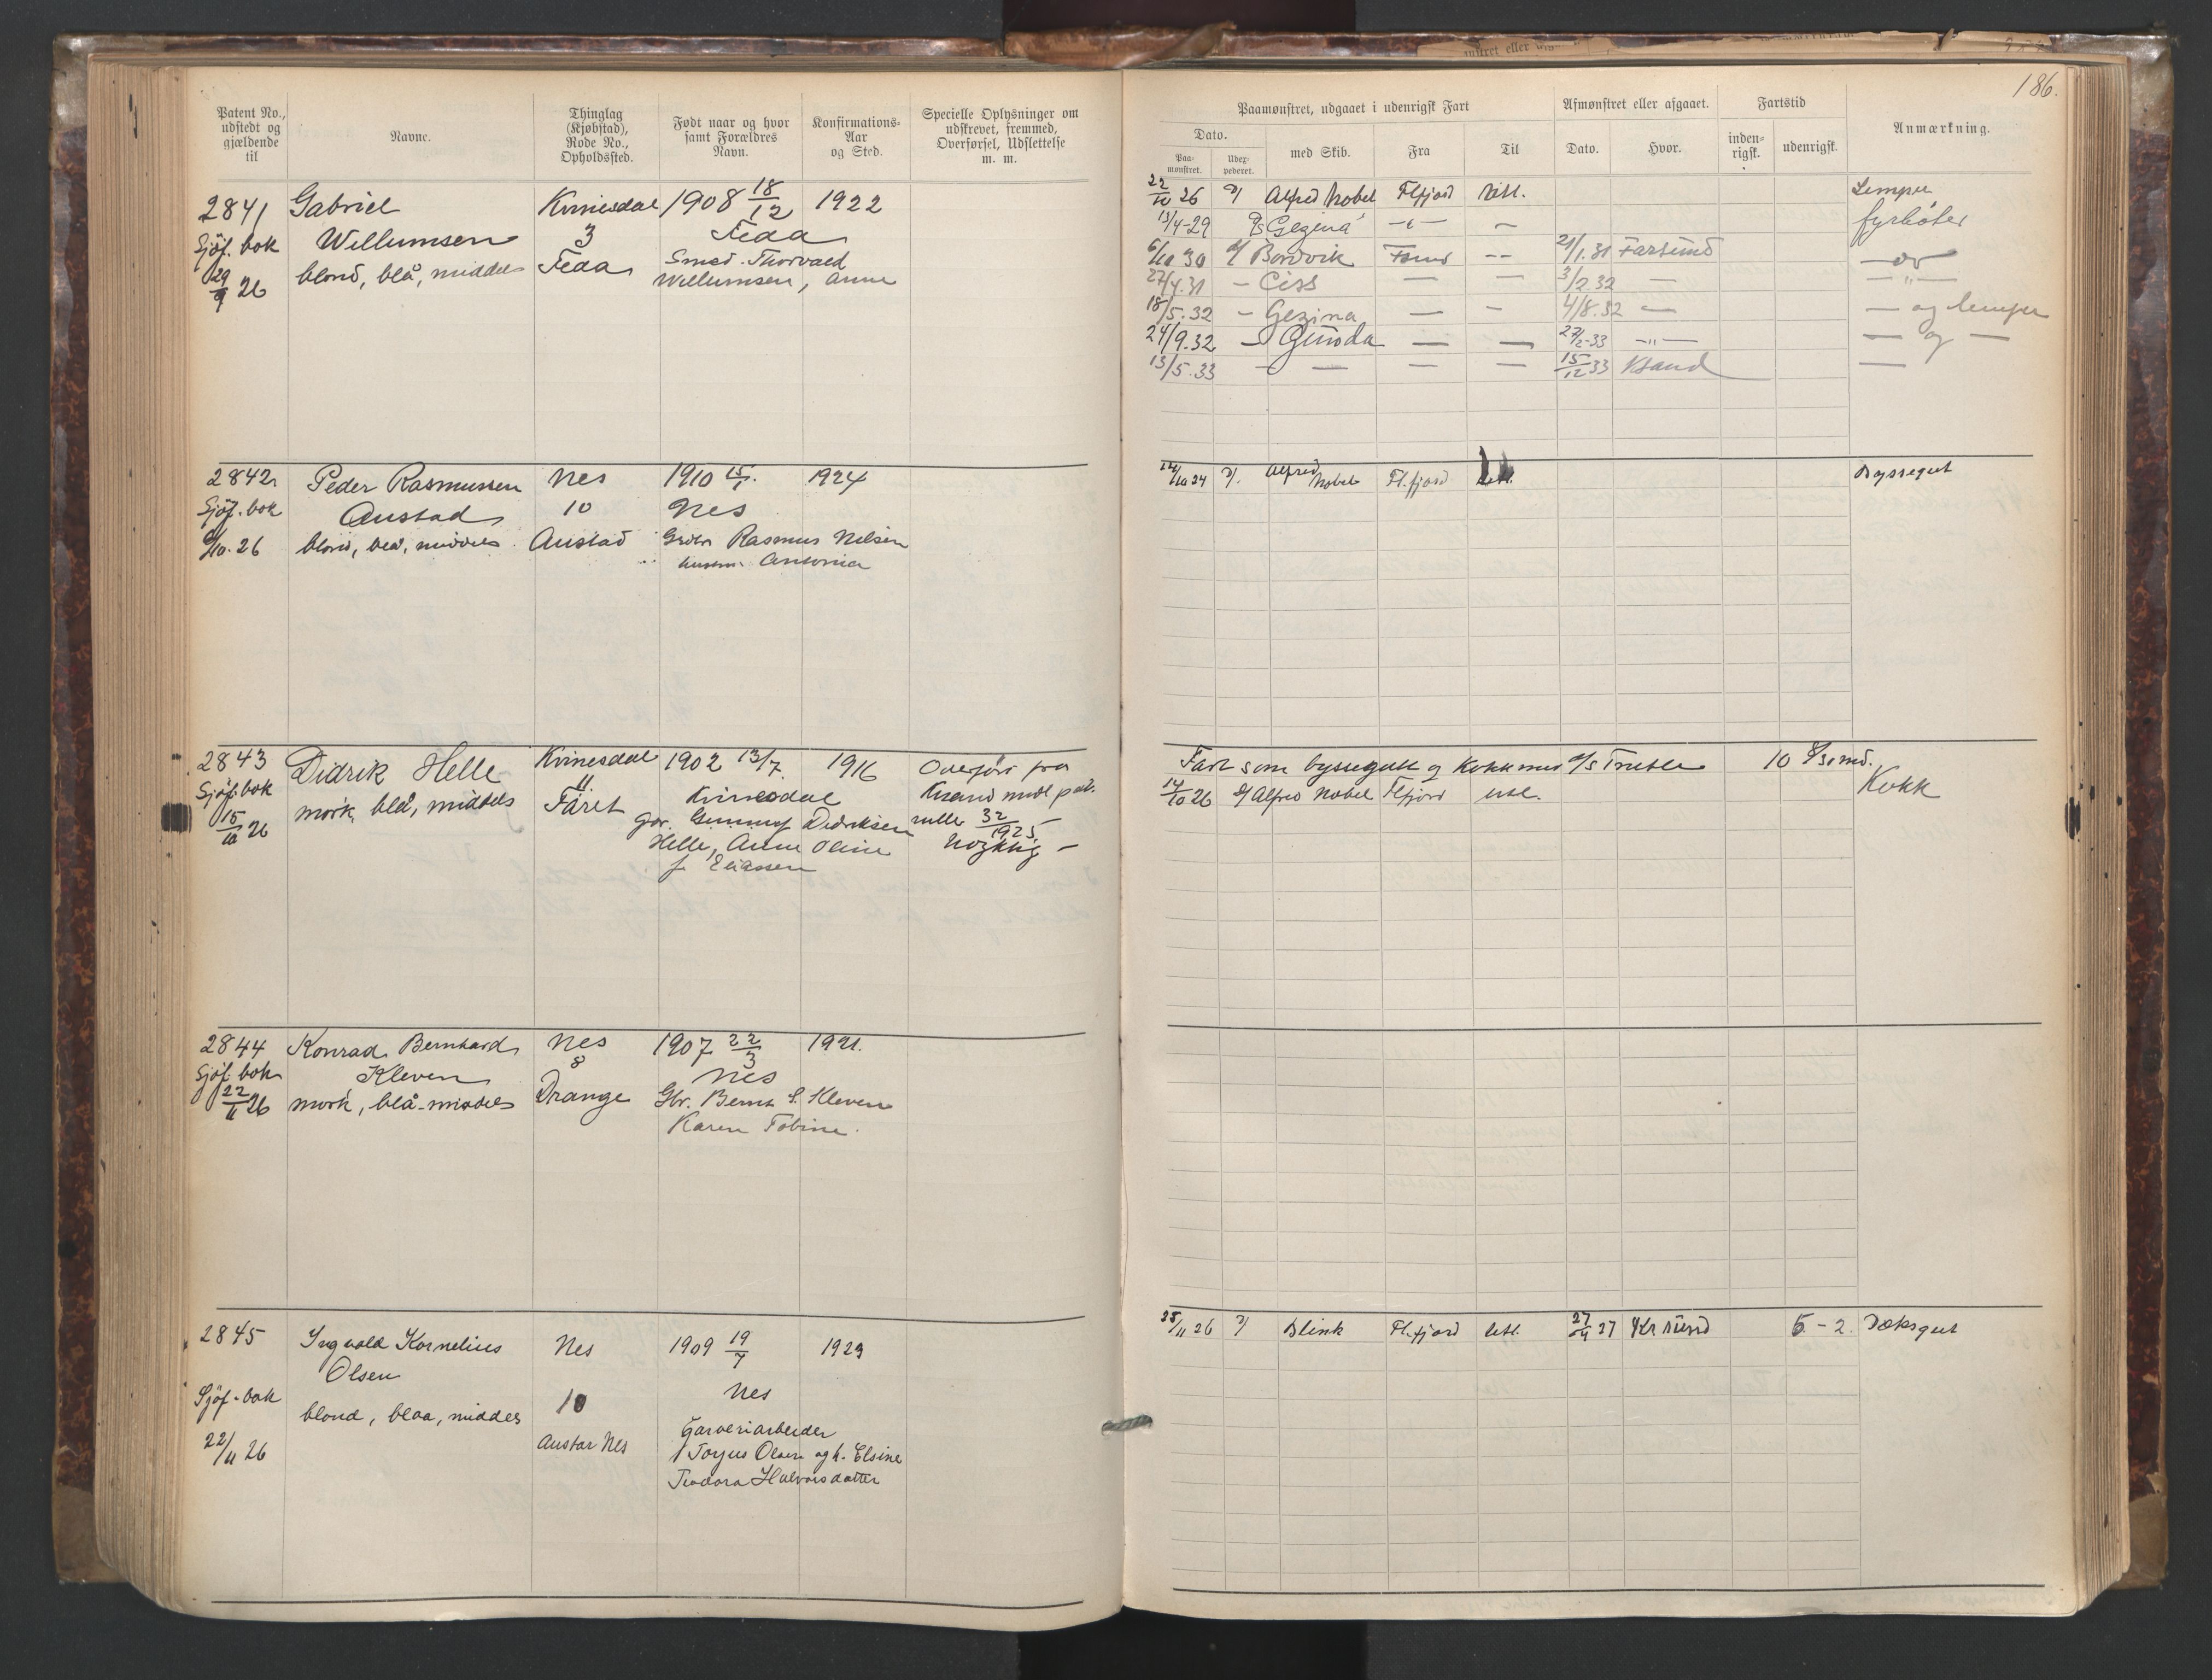 186.
Patent No., udstedt og gjældende til
Navne.
Thinglag (Kjøbstad), Rode No., Opholdssted.
Født naar og hvor samt Forældres Navn.
Konfirmations-Aar og Sted.
Specielle Oplysninger om udskrevet, fremmed, Overførsel, Udslettelse m. m.
Paamønstret, udgaaet i udenrigsk Fart
Afmønstret eller afgaaet.
Fartstid
Anmærkning.
Dato.
Paa-mønstret.
Udex-pederet.
med Skib.
Fra
Til
Dato.
Hvor.
inden-rigsk.
udenrigsk.
2841 Gabriel Kvinesdal 1908 18/12 1922
Sjøf. bok Willumsen 3 Feda
29/9 26 blond, blå, middels Feda Smed Thorvald
Willumsen, Anne
22/10 26 D/ Alfred Nobel Flfjord Utl. Lemper
13/4-29 D/S Gezina -"- — fyrbøter
6/10 30 D/ Bordvik Fsund -- 21/1.31 Farsund — do —
27/4.31 — Ciss — — 3/2.32 — — " —
18/5.32 — Gezina — — 4/8.32 — — og lemper
24/9.32 — Gunda — — 27/2-33 —"— — og —
13/5.33 — — — — 15/12 33 Ksand —
2842 Peder Rasmussen Nes 1910 15/1. 1924
Sjøf. bok Austad 10 Nes
/10.26 blond, blå, middels Austad Grdbr Rasmus Nilsen
hustru Antonia
/10 24 D/. Alfred Nobel Fl.fjord Utl. Byssegut
2843 Didrik Helle Kvinesdal 1902 13/7. 1916 Overført fra
Sjøf. bok mørk, blå, middels 11 Kvinesdal Krsand
15/10 26 Fåret Didriksen rulle 32/1925
Helle, Anne Oline
f. Eliassen
Fart som byssegutt og kokk med D/S 10 8/30 md.
14/10 26 D/ Alfred Nobel Flfjord utl. Kokk
2844 Konrad Bernhard Nes 1907 22/3 1921.
Sjøf. bok Kleven 8 Nes
22/11 26 mørk, blå - middels Drange Gbr. Bernt S. Kleven
Karen Tobine.
2845 Ingvald Kornelius Nes 1909 19/7 1923
Olsen
Sjøf. bok blond, blaa, middels 10 Nes
22/11 26 Austar Nes Garveriarbeider
Torjus Olsen og h. Elsine
Teodora Halvorsdatter
25/11 26 D/ Blink Fl.fjord Utl. 27/4 27 Kr sund 5 - 2. Dæksgut